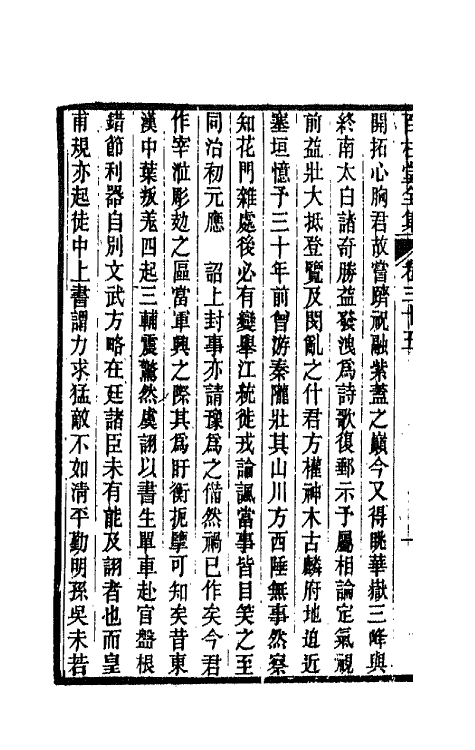 百柱堂全集 卷三十五
開拓心胸君故嘗躋祝融紫蓋之巔今又得眺華嶽三峰與
終南太白諸奇勝益發洩爲詩歌復郵示予屬相論定氣視
前益壯大抵登覽及閔亂之什君方權神木古麟府地迫近
塞垣憶予三十年前曾游秦隴壯其山川方西陲無事然察
知花門雜處後必有變舉江統徙戎論諷當事皆目笑之至
同治初元應 詔上封事亦請豫爲之備然禍已作矣今君
作宰涖彫攰之區當軍興之際其爲盱衡扼擥可知矣昔東
漢中葉叛羌四起三輔震驚然虞詡以書生單車赴官盤根
錯節利器自別文武方略在廷諸臣未有能及詡者也而皇
甫規亦起徒中上書謂力求猛敵不如清平勤明孫吳未若